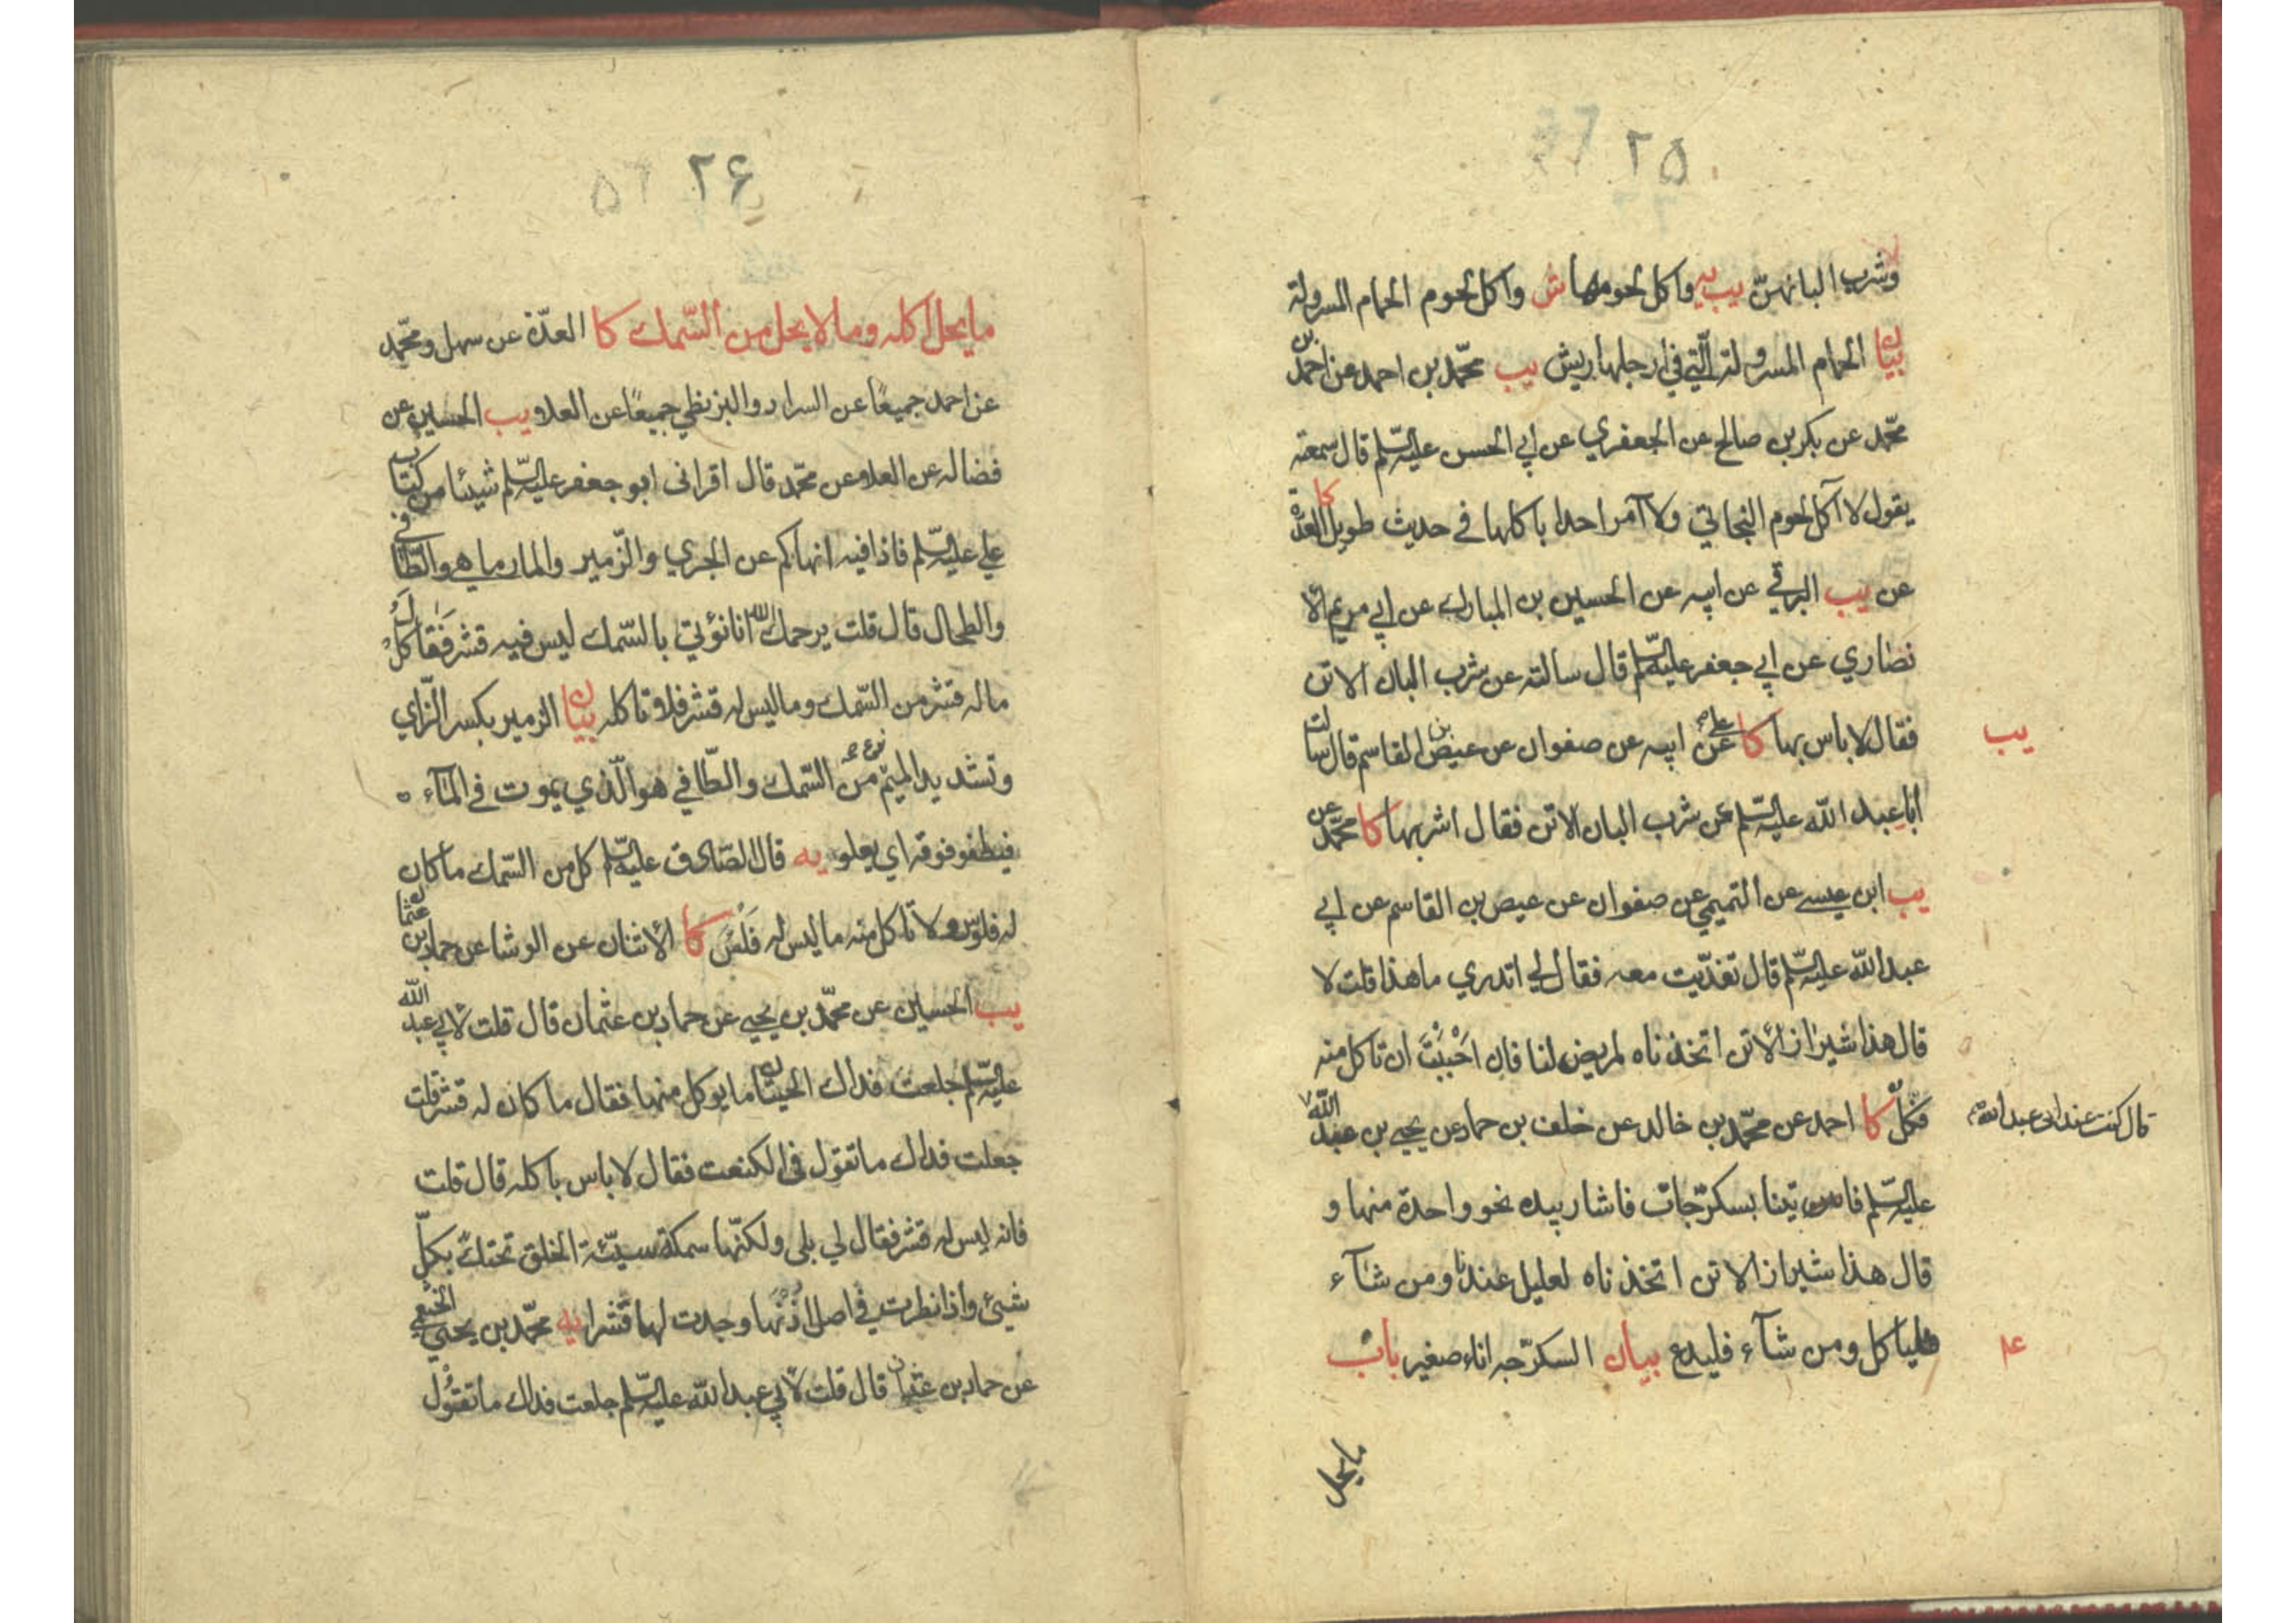 ٢٥
وشرب البانهن يب يه واكل لحومها ش واكل لحوم الحمام المسرولة
بيان الحمام المسرولة الّتي في ارجلها ريش يب محمّد بن احمد عن احمد بن
محمّد عن بكر بن صالح عن الجعفري عن ابي الحسن عليه السّلم قال سمعته
يقول لا آكل لحوم البخاتي ولا آمر احدا باكلها في حديث طويل كا العدة
عن يب البرقي عن ابيه عن الحسين بن المبارك عن ابي مريم الا
نصاري عن ابي جعفر عليه السّلم قال سالته عن شرب البان الاتن
فقال لا باس بها كا علي عن ابيه عن صفوان عن عيص بن القاسم قال سالت
يب
ابا عبد الله عليه السّلم عن شرب البان الاتن فقال اشربها كا محمّد عن
يب ابن عيسى عن التميمي عن صفوان عن عيص بن القاسم عن ابي
عبد الله عليه السّلم قال تغدّيت معه فقال لي اتدري ما هذا قلت لا
قال هذا شيراز الاتن اتخذناه لمريض لنا فان احببت ان تاكل منه
فكل كا احمد عن محمّد بن خالد عن خلف بن حماد عن يحيى بن عبد الله
قال كنت عند ابي عبد الله
عليه السّلم فاتينا بسكرّجات فاشار بيده نحو واحدة منها و
قال هذا شيراز الاتن اتخذناه لعليل عندنا ومن شآء
فلياكل ومن شآء فليدع بيان السكرّجه اناء صغير باب
ما يحل
٢۶ ٢۵
ما يحل اكله وما لا يحل من السّمك كا العدّة عن سهل ومحمّد
عن احمد جميعًا عن السراد والبزنطي جميعًا عن العلا يب الحسين عن
فضاله عن العلا عن محمّد قال اقرانى ابو جعفر عليه السّلم شيئا من كتاب
علي عليه السّلم فاذا فيه انهاكم عن الجري والزّمير والمارماهي والطّافي
والطحال قال قلت يرحمك الله انا نؤتي بالسّمك ليس فيه قشر فقال كل
ما له قشر من السّمك وما ليس له قشر فلا تاكله بيان الزمير بكسر الزّاي
وتشديد الميم نوع من السّمك والطّافي هو الّذي يموت في المآء
فيطفو فوقه اي يعلو يه قال الصّادق عليه السّلم كل من السّمك ما كان
له فلوس ولا تاكل منه ما ليس له فَلس كا الاثنان عن الوشا عن حماد بن عثمان
يب الحسين عن محمّد بن يحيى عن حماد بن عثمان قال قلت لابي عبد الله
عليه السّلم جلعت فداك الحيتان ما يوكل منها فقال ما كان له قشر قلت
جعلت فداك ما تقول في الكنعت فقال لا باس باكله قال قلت
فانه ليس له قشر فقال لي بلى ولكنّها سمكة سيّئة الخلق تحتك بكلّ
شيئ واذا نظرت في اصل اذنها وجدت لها قشرا يه محمّد بن يحيى الخثعمي
عن حماد بن عثمان قال قلت لابي عبد الله عليه السّلم جلعت فداك ما تقول